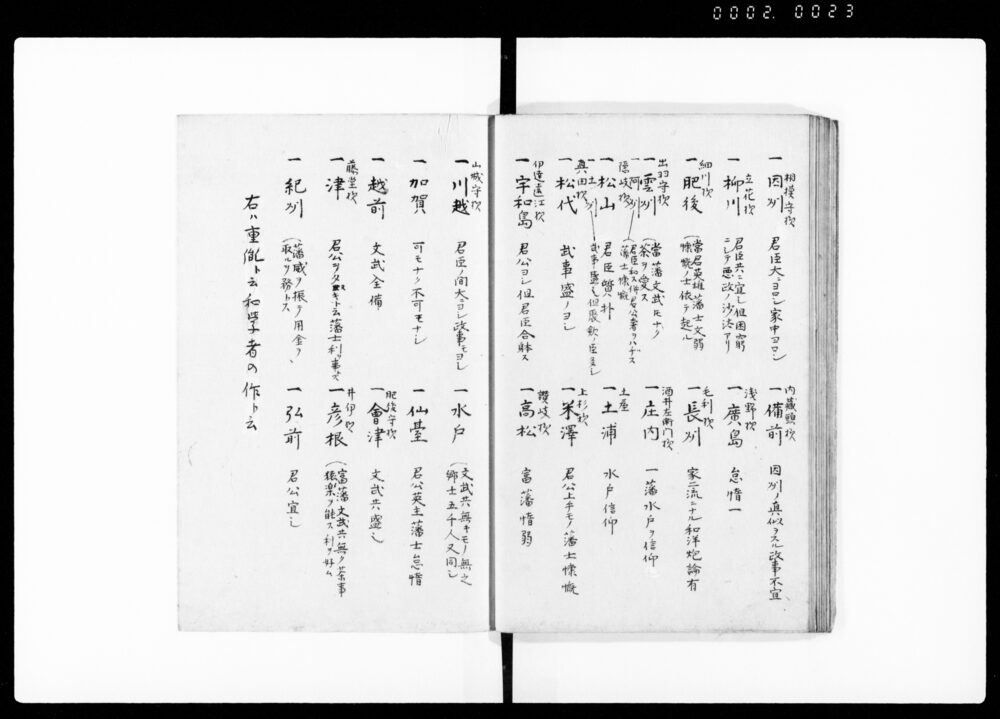 0002. 0023
相模守抜
一因州 君臣大ニヨロシ家中ヨロシ
内蔵頭抜
一備前 因州ノ真似ヲスル政事不宜
立花抜
一柳川 君臣共ニ宜シ但困窮ニシテ悪政ノ沙汰アリ
浅野抜
一廣島 怠惰一
細川抜
一肥後 當君英雄藩士文弱
慷慨ノ士依テ起ル
毛利抜
一長州 家二流ニナル和洋炮論有
出羽守抜
一雲州 當藩文武モナク
茶ヲ愛ス
酒井左衛門抜
一庄内 一藩水戸ヲ信仰
一阿州 君臣和ス
藩士慷慨
隠岐抜
一松山 君臣質朴
土屋
一土浦 水戸信仰
一土州 武事盛シ但
真田抜
一松代 武事盛ノヨシ
上杉抜
一米澤 君公上キモノ藩士慷慨
伊達遠江抜
一宇和島 君公ヨシ但君臣合躰ス
讃岐抜
一高松 富藩惰弱
山城守抜
一川越 君臣ノ間大ニヨシ政事モヨシ
一水戸 文武共無キモノ無之
郷士五千人又同シ
一加賀 可モナク不可モナシ
一仙臺 君公英主藩士怠惰
一越前 文武全備
肥後守抜
一會津 文武共盛シ
藤堂抜
一津 君公ヲタスキト云藩士利事ズ
井伊抜
一彦根 富藩文武共無ク茶事
猿楽ヲ能ス利ヲ好ム
一紀州 藩威ヲ振ヲ用金ヲ
取ルヲ務トス
一弘前 君公宜シ
右ハ重胤ト云和学者の作ト云